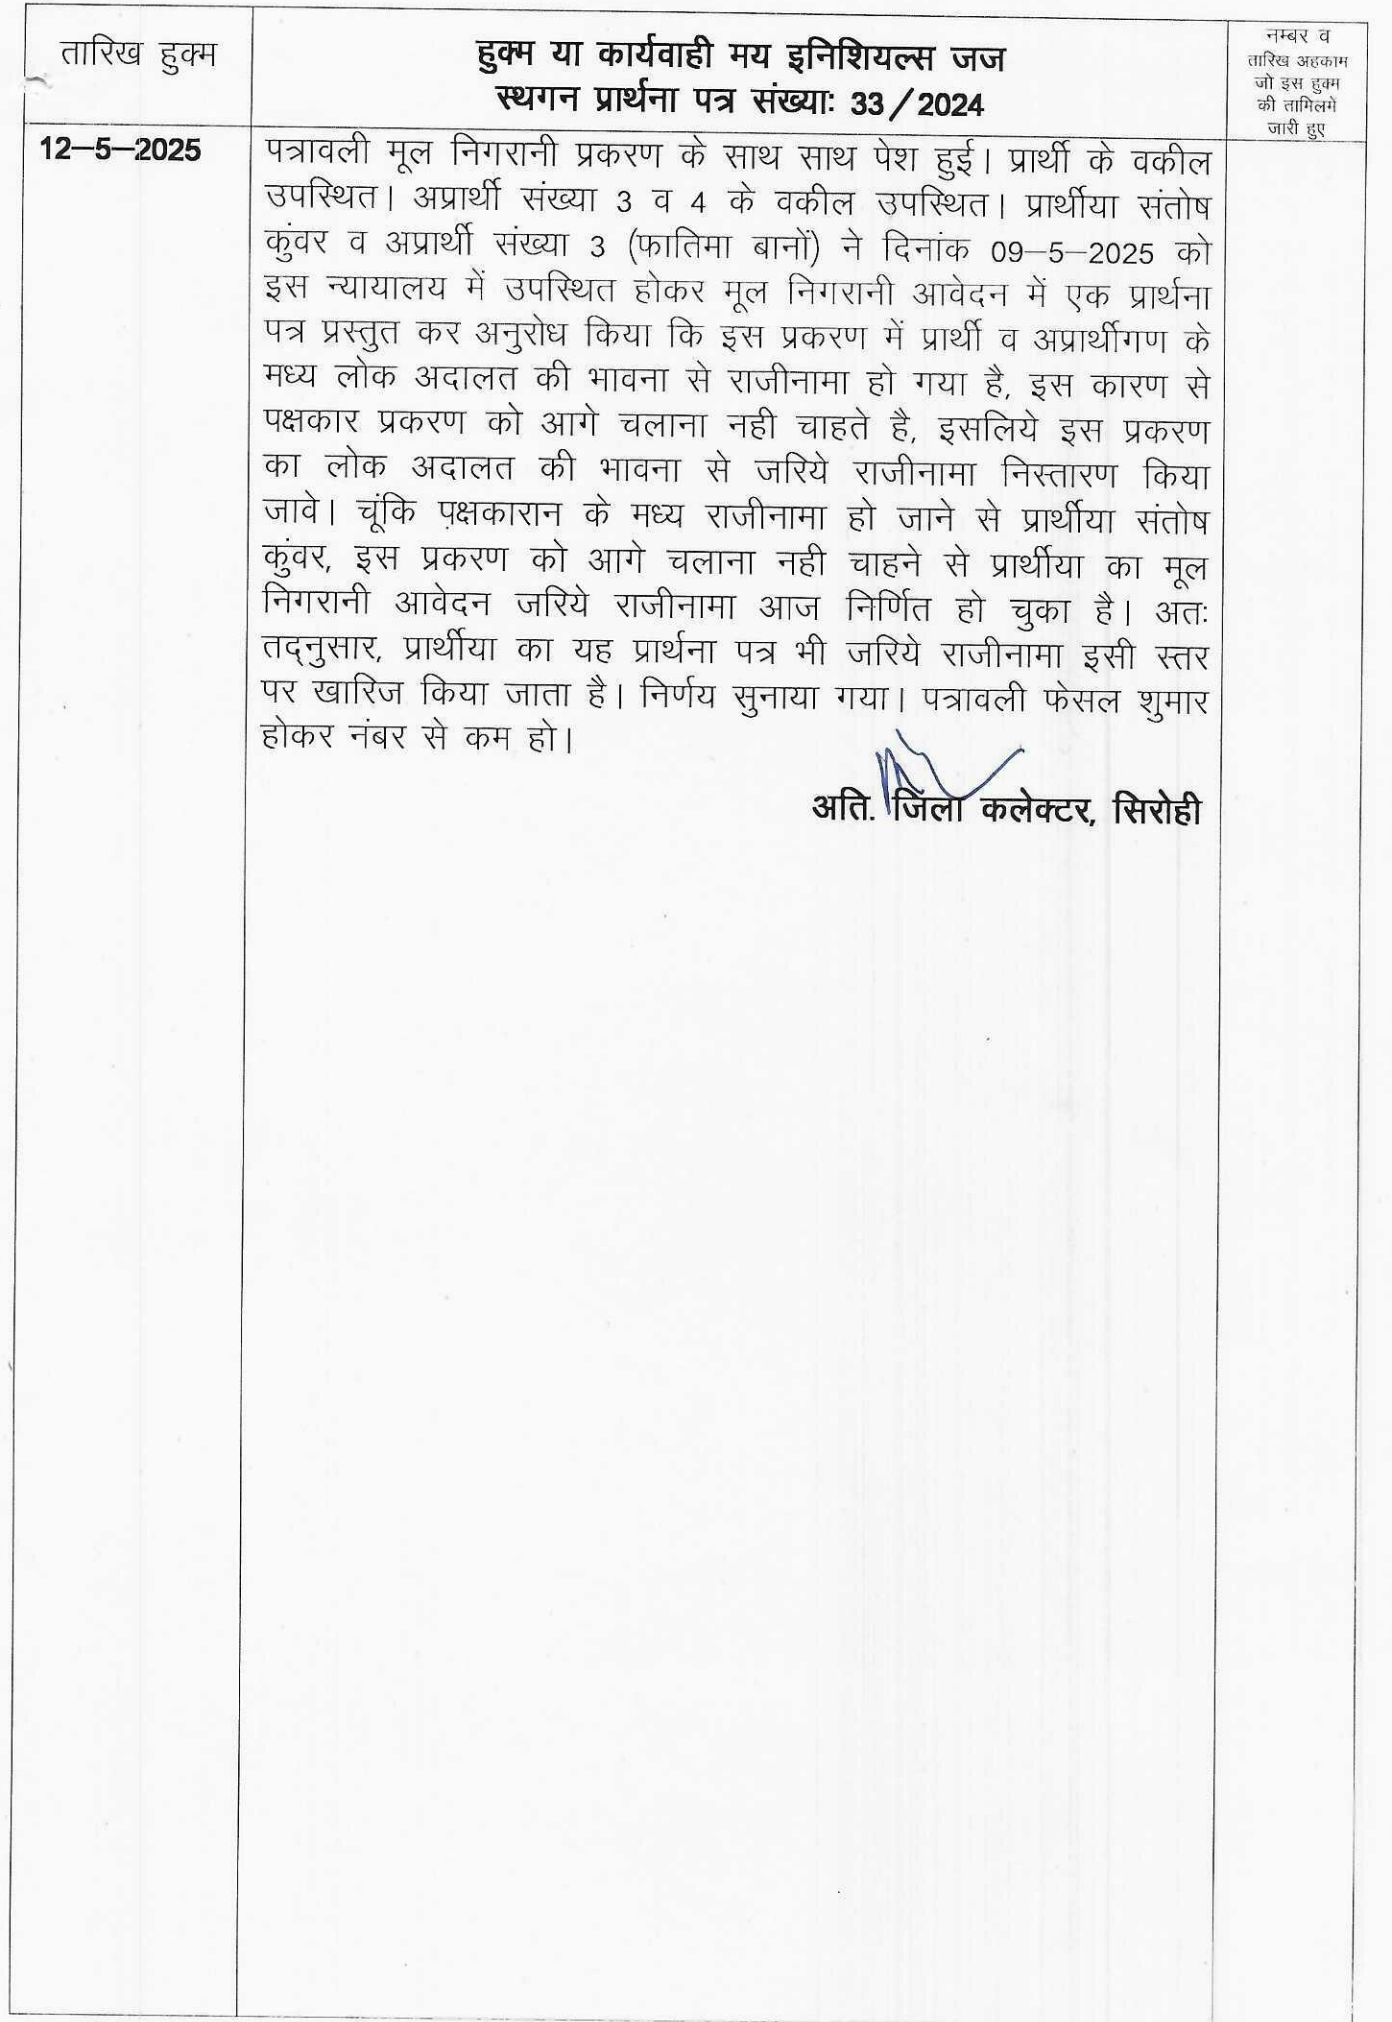 तारिख हुक्म
हुक्म या कार्यवाही मय इनिशियल्स जज
स्थगन प्रार्थना पत्र संख्याः 33/2024
नम्बर व
तारिख अहकाम
जो इस हुक्म
की तामिलमे
जारी हुए
12–5–2025
पत्रावली मूल निगरानी प्रकरण के साथ साथ पेश हुई। प्रार्थी के वकील
उपस्थित। अप्रार्थी संख्या 3 व 4 के वकील उपस्थित। प्रार्थीया संतोष
कुंवर व अप्रार्थी संख्या 3 (फातिमा बानों) ने दिनांक 09–5–2025 को
इस न्यायालय में उपस्थित होकर मूल निगरानी आवेदन में एक प्रार्थना
पत्र प्रस्तुत कर अनुरोध किया कि इस प्रकरण में प्रार्थी व अप्रार्थीगण के
मध्य लोक अदालत की भावना से राजीनामा हो गया है, इस कारण से
पक्षकार प्रकरण को आगे चलाना नही चाहते है, इसलिये इस प्रकरण
का लोक अदालत की भावना से जरिये राजीनामा निस्तारण किया
जावे। चूंकि पक्षकारान के मध्य राजीनामा हो जाने से प्रार्थीया संतोष
कुंवर, इस प्रकरण को आगे चलाना नही चाहने से प्रार्थीया का मूल
निगरानी आवेदन जरिये राजीनामा आज निर्णित हो चुका है। अतः
तद्नुसार, प्रार्थीया का यह प्रार्थना पत्र भी जरिये राजीनामा इसी स्तर
पर खारिज किया जाता है। निर्णय सुनाया गया। पत्रावली फेसल शुमार
होकर नंबर से कम हो।
अति. जिला कलेक्टर, सिरोही